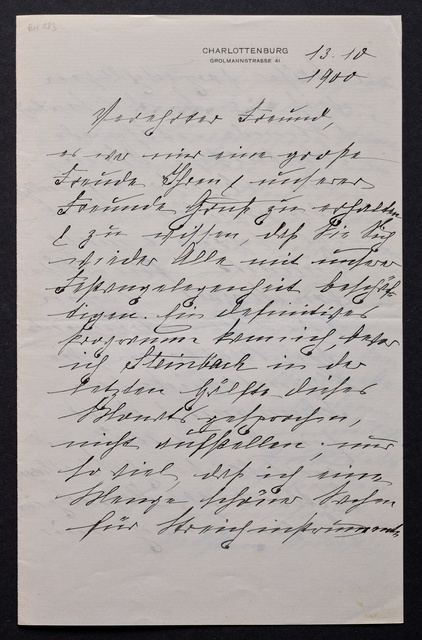 BH 183
CHARLOTTENBURG
GROLMANNSTRASSE 41
13.10
1900
Verehrter Freund,
es war mir eine große
Freude Ihren & unserer
Freunde Gruß zu erhalten
& zu wissen, daß Sie Sich
wieder Alle mit unserer
Festangelegenheit beschäf-
tigen. Ein definitives
Programm kann ich, bevor
ich Steinbach in der
letzten Hälfte dieses
Monats gesprochen,
nicht aufstellen; nur
so viel, daß ich eine
Menge schöner
für Streichinstrumente